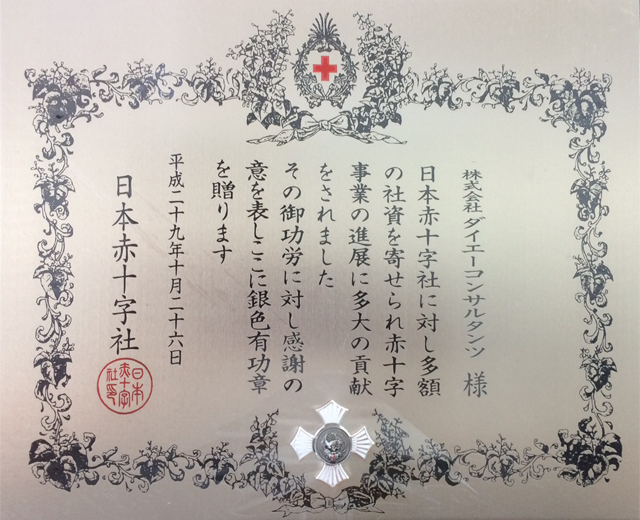 株式会社 ダイエーコンサルタンツ 様
日本赤十字社に対し多額
の社資を寄せられ赤十字
事業の進展に多大の貢献
をされました
その御功労に対し感謝の
意を表しここに銀色有功章
を贈ります
平成二十九年十月二十六日
日本赤十字社
日本
赤十字
社印